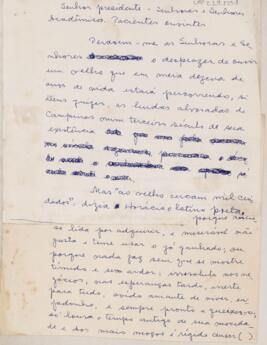 Senhor presidente - Senhoras e Senhores
Acadêmicos. Pacientes ouvintes
Perdoem-me as Senhoras e Se-
nhores o desprazer de ouvir
um velho que em meia dezena de
anos de vida estará percorrendo, si
, as lindas alvoradas de
Campinas num terceiro século de sua
existência
Mas "ao velho cercam mil cui-
dados", dizia Horácio latino poeta,
porque
se lida por adquirir, e miserável não
e teme usar o já ganhado; ou
porque nada faz sem que se mostre
tímido e sem ardor; irresoluto nos ne-
gócios, nas esperanças tardo, inerte
para tudo, ávido amante de viver, en-
fadonho, e sempre pronto a queixar-se;
só louva o tempo antigo de sua mocida-
de e dos mais moços é rígido censor ( )